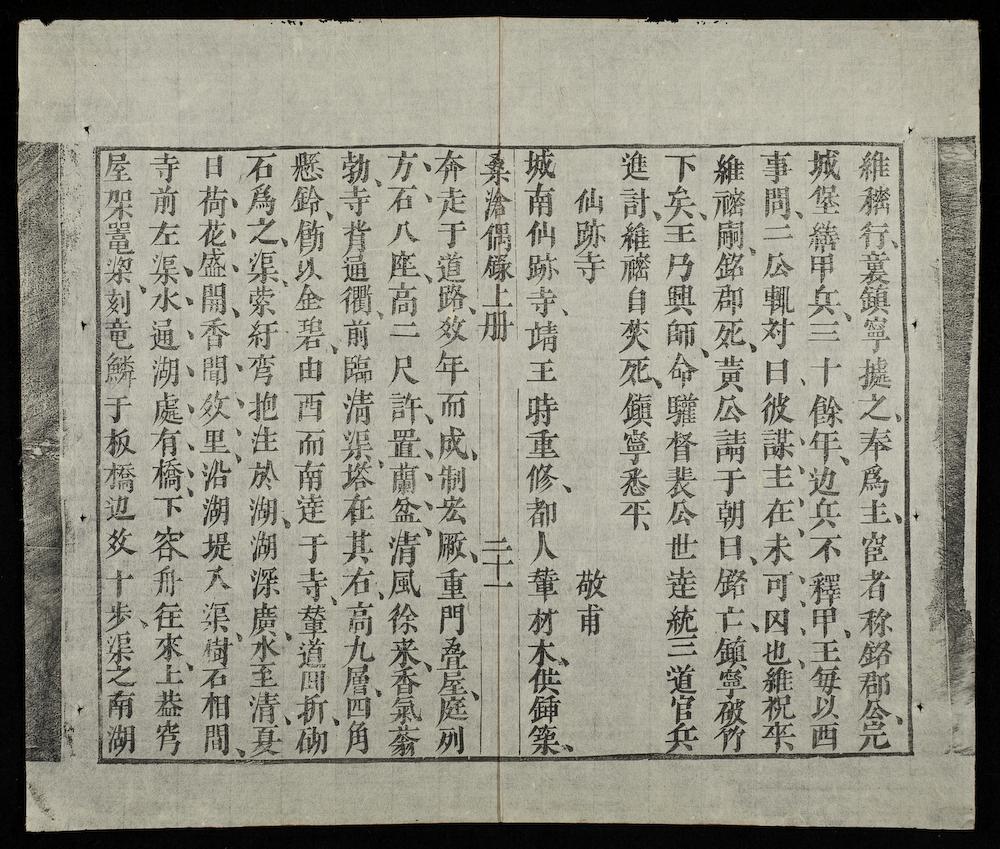 維䄎行裏鎮寧據之奉爲主宦者称銘郡公完
城堡繕甲兵三十餘年边兵不釋甲王每以西
事問二公輒対曰彼謀主在未可図也維祝卒
維䄎嗣銘郡死黃公請于朝曰銘亡鎮寧破竹
下矣王乃興師命驩督裴公世達統三道官兵
進討維䄎自焚死鎮寧悉平
仙跡寺 敬甫
城南仙跡寺靖王時重修都人輦材木供鍤築
桑滄偶錄上册 二十一
奔走于道路效年而成制宏厰重門叠屋庭列
方石八座高二尺許置蘭盆清風徐來香氣蓊
勃寺背逼衢前臨清渠塔在其右高九層四角
懸鈴餙以金碧由西而南達于寺輦道囬折砌
石爲之渠縈紆弯抱注於湖湖深廣水至清夏
日荷花盛開香聞效里沿湖堤入渠樹石相間
寺前左渠水通湖處有橋下容舟往來上葢穹
屋架鼍梁刻竜鱗于板橋边效十步渠之南湖